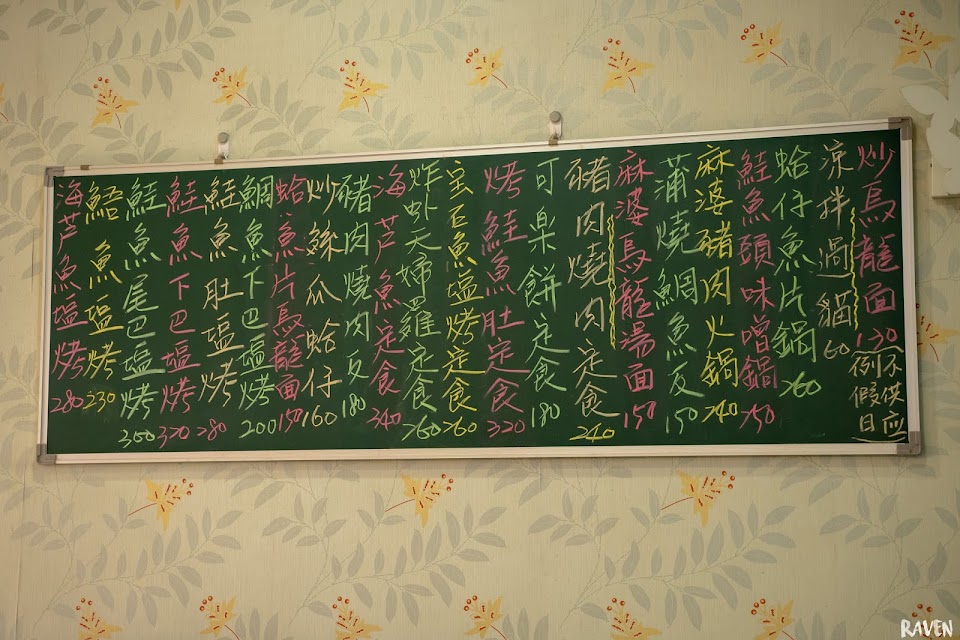 炒烏龍面130
(不供应
例假日)
涼拌過貓60
蛤仔魚片鍋260
鮭魚頭味噌鍋250
麻婆豬肉火鍋240
蒲燒鯛魚反150
麻婆烏龍湯面150
豬肉燒肉定食240
可樂餅定食180
烤鮭魚肚定食320
魚塩烤定食260
炸虾天婦羅定食260
海芦魚定食340
豬肉燒肉反180
炒絲瓜蛤仔160
蛤魚片烏龍面150
鯛魚下巴塩烤200
鮭魚肚塩烤280
鮭魚下巴塩烤320
鮭魚尾巴塩烤300
魚塩烤230
海芦魚塩烤280
RAVEN